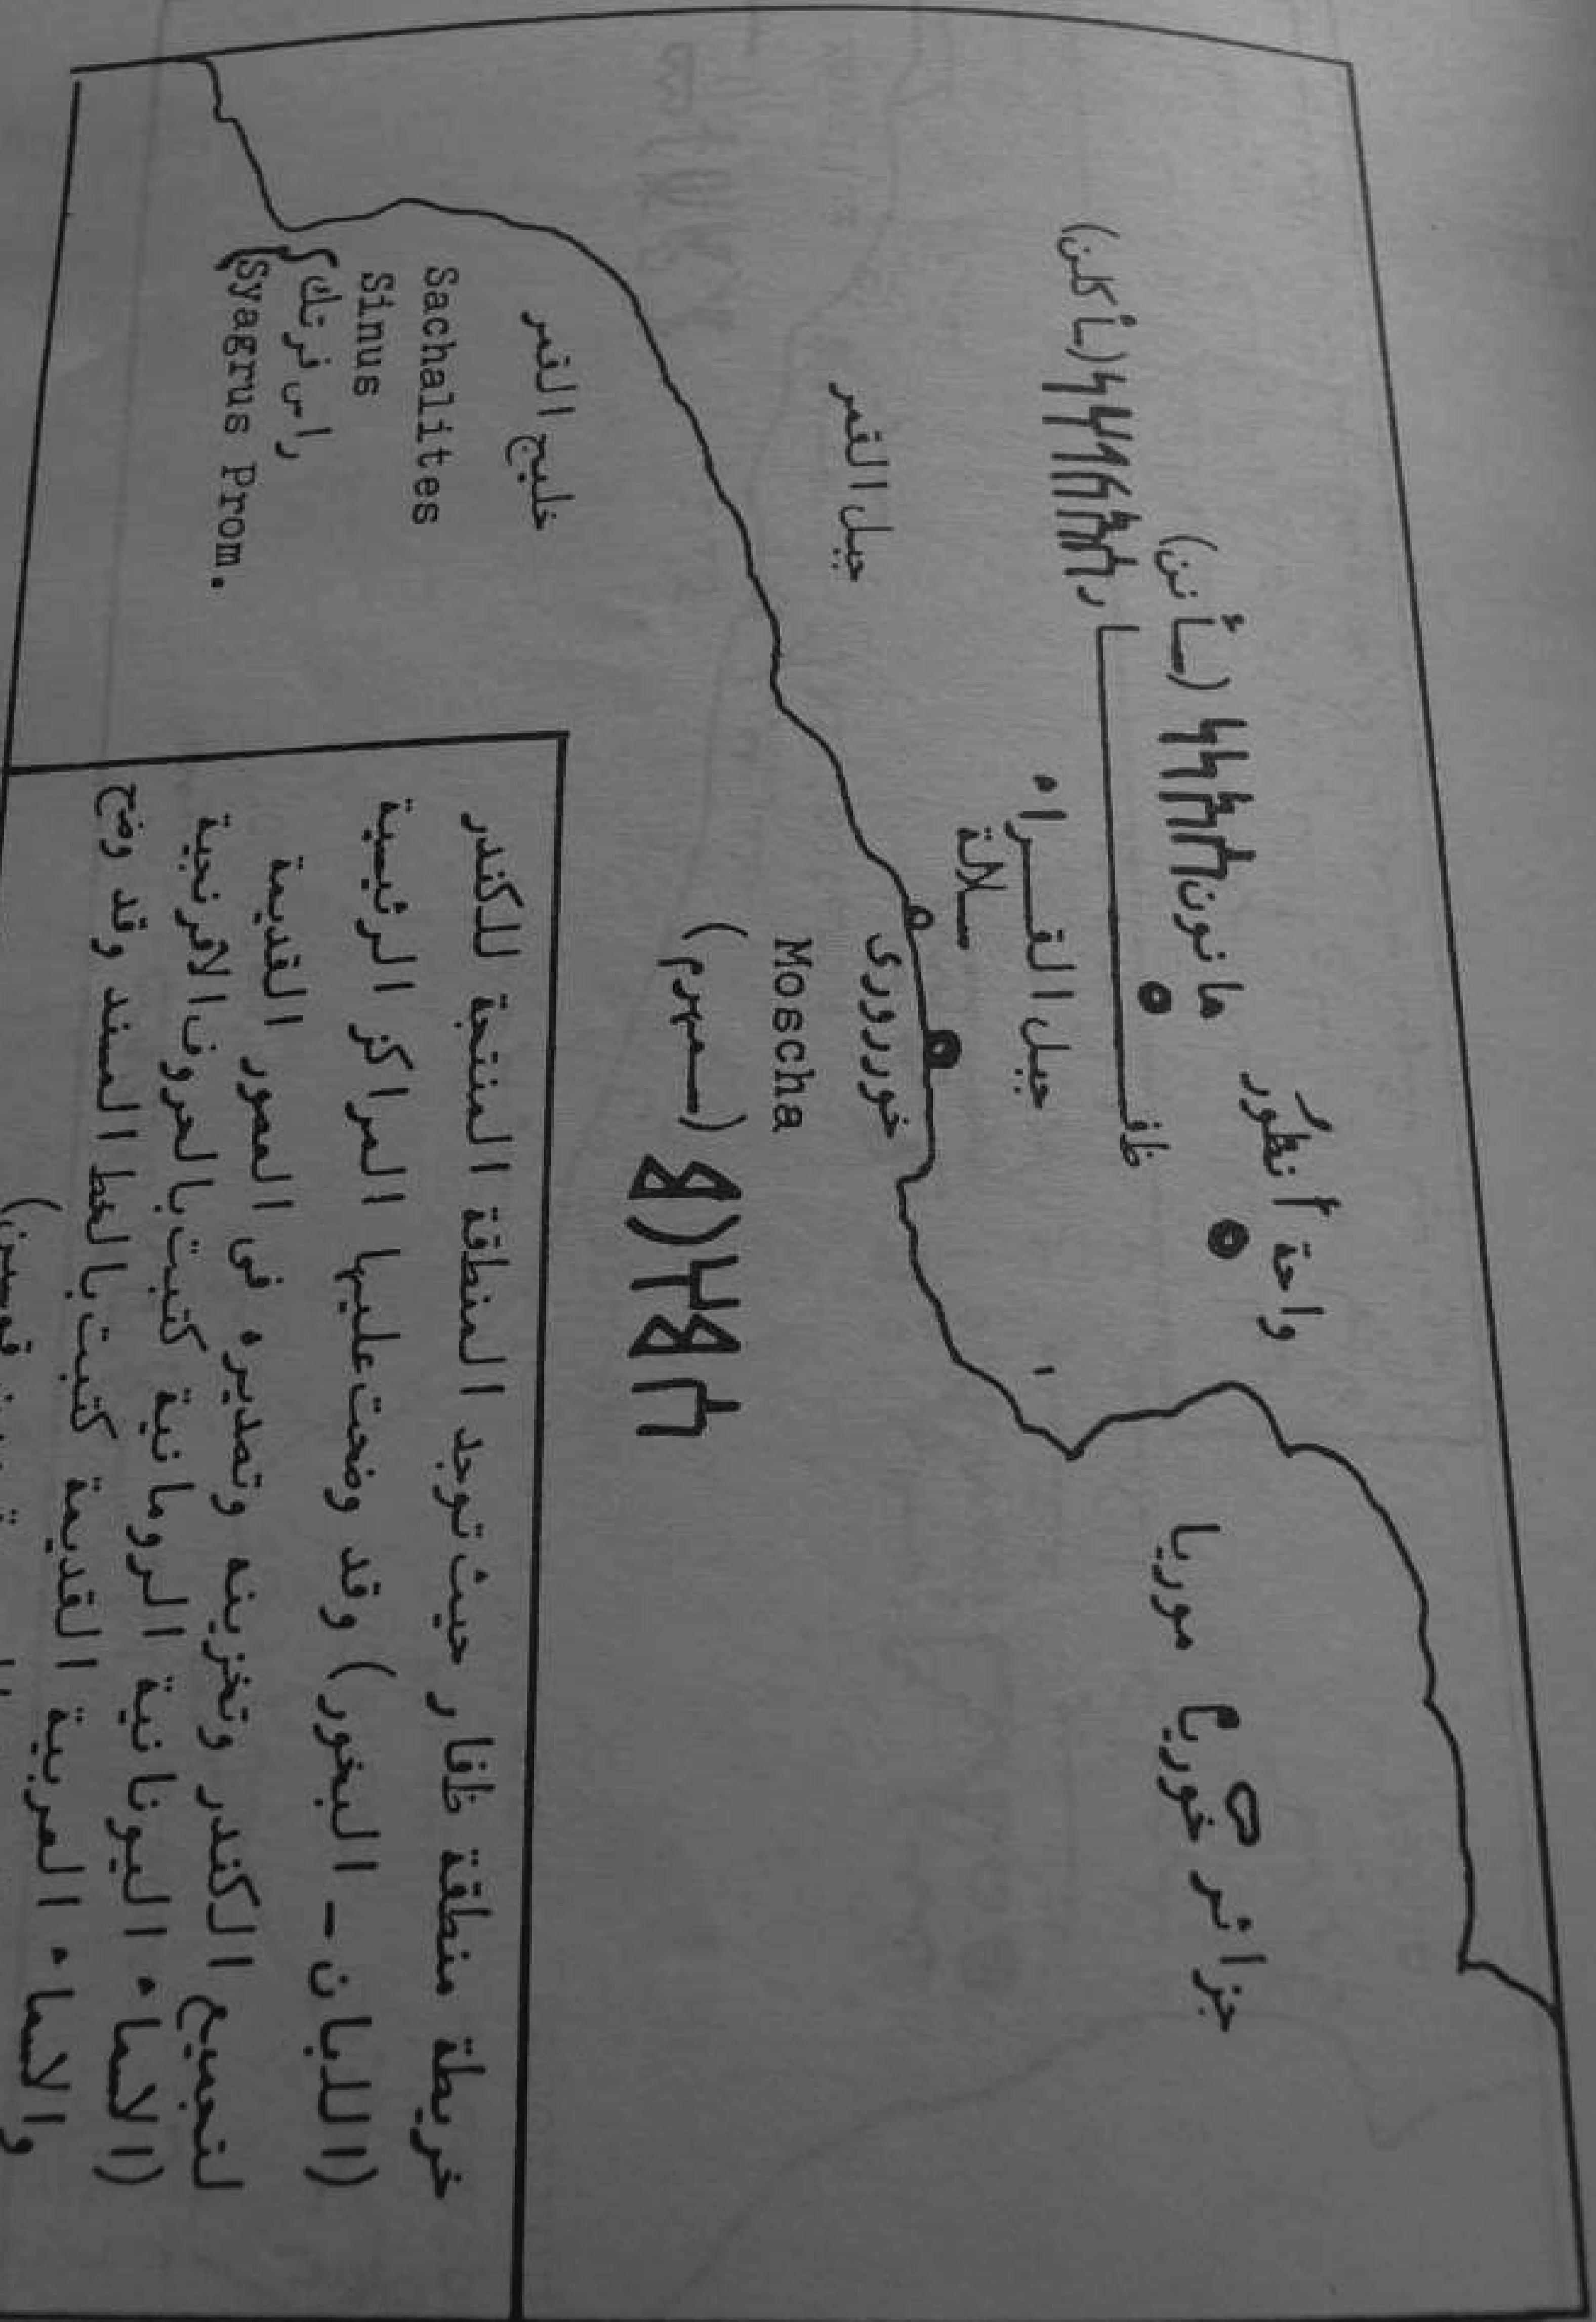 واحة أنظور
هانون 𐩪𐩱𐩬𐩬 (سأنن)
ظفار 𐩪𐩱𐩫𐩡𐩬 (سأكلن)
جبل القراء
سلالة
جبل القمر
خوررورى
Moscha
𐩪𐩣𐩠𐩧𐩣 (سمهرم)
جزائر خوريا موريا
خليج القمر
Sachalites
Sinus
راس فرتك
Syagrus Prom.
خريطة منطقة ظفار حيث توجد المنطقة المنتجة للكندر
(اللبان - البخور) وقد وضحت عليها المراكز الرئيسية
لتجميع الكندر وتخزينه وتصديره فى العصور القديمة
(الاسماء اليونانية الرومانية كتبت بالحروف الافرنجية
والاسماء العربية القديمة كتبت بالخط المسند وقد وضح